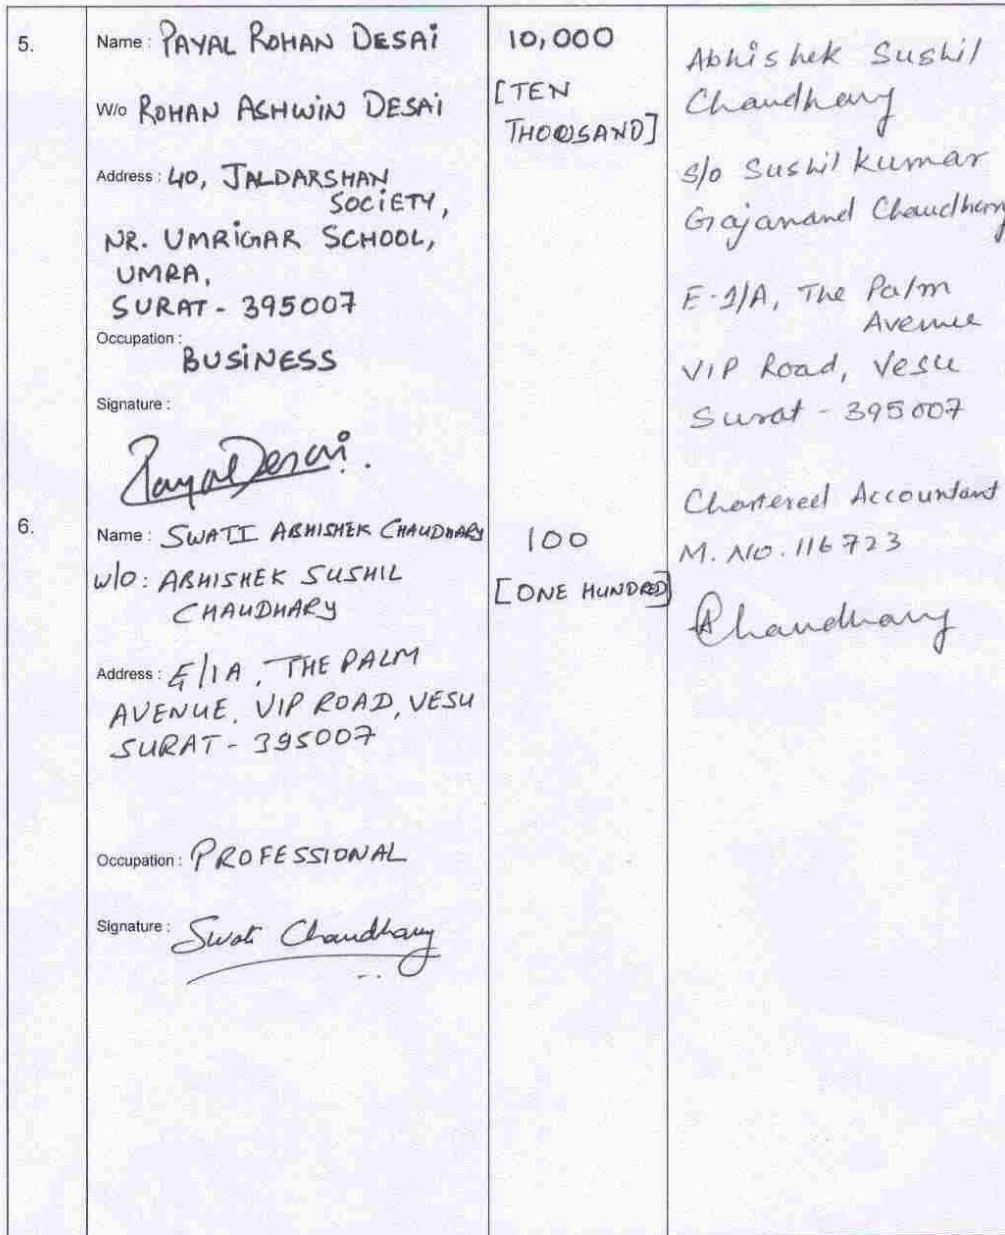 5.
Name : PAYAL ROHAN DESAI
W/o ROHAN ASHWIN DESAI
Address : 40, JALDARSHAN
SOCIETY,
NR. UMRIGAR SCHOOL,
UMRA,
SURAT - 395007
Occupation :
BUSINESS
Signature :
Payal Desai.
10,000
[TEN
THOUSAND]
6.
Name : SWATI ABHISHEK CHAUDHARY
W/O : ABHISHEK SUSHIL
CHAUDHARY
Address : E/1A, THE PALM
AVENUE, VIP ROAD, VESU
SURAT - 395007
Occupation : PROFESSIONAL
Signature : Swati Chaudhary
100
[ONE HUNDRED]
Abhishek Sushil
Chaudhary
S/o Sushil Kumar
Gajanand Chaudhary
E-1/A, The Palm
Avenue
VIP Road, Vesu
Surat - 395007
Chartered Accountant
M. NO. 116723
AChaudhary